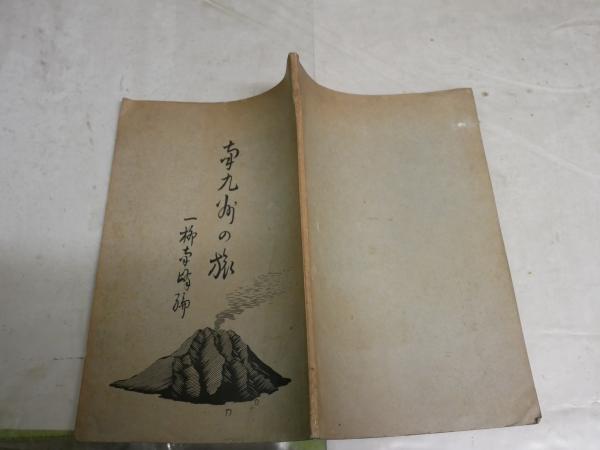 南九州の旅
一柳南峰編